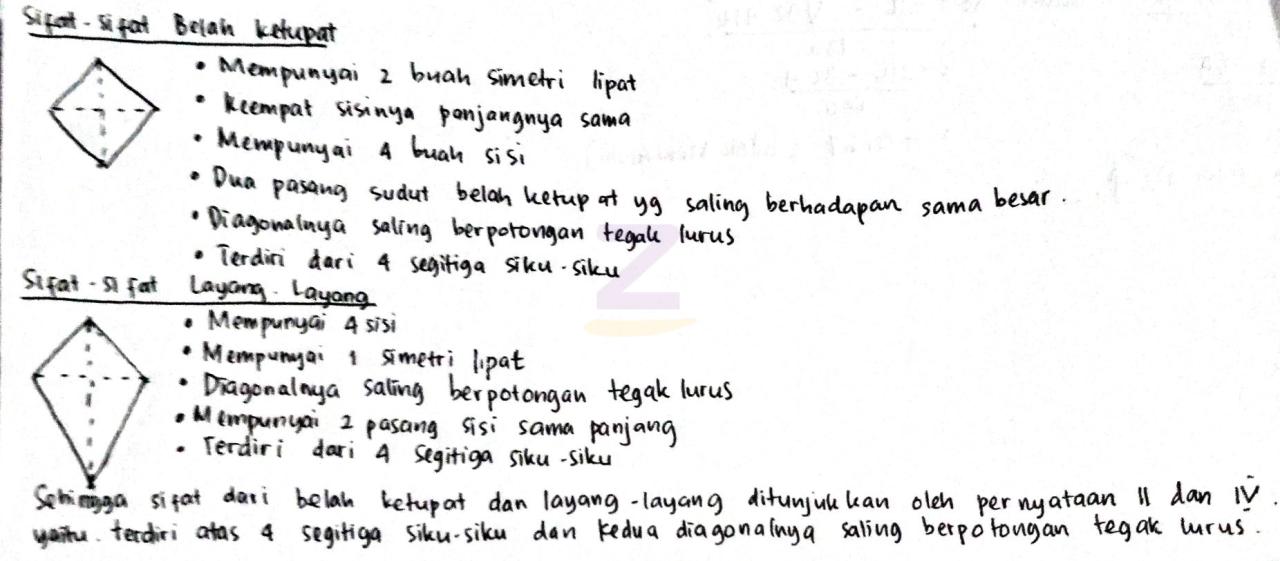 Sifat-sifat Belah ketupat
• Mempunyai 2 buah simetri lipat
• Keempat sisinya panjangnya sama
• Mempunyai 4 buah sisi
• Dua pasang sudut belah ketupat yg saling berhadapan sama besar.
• Diagonalnya saling berpotongan tegak lurus
• Terdiri dari 4 segitiga siku-siku
Sifat-sifat Layang-Layang
• Mempunyai 4 sisi
• Mempunyai 1 simetri lipat
• Diagonalnya saling berpotongan tegak lurus
• Mempunyai 2 pasang sisi sama panjang
• Terdiri dari 4 segitiga siku-siku
Sehingga sifat dari belah ketupat dan layang-layang ditunjukkan oleh pernyataan II dan IV.
yaitu. terdiri atas 4 segitiga siku-siku dan kedua diagonalnya saling berpotongan tegak lurus.
Z